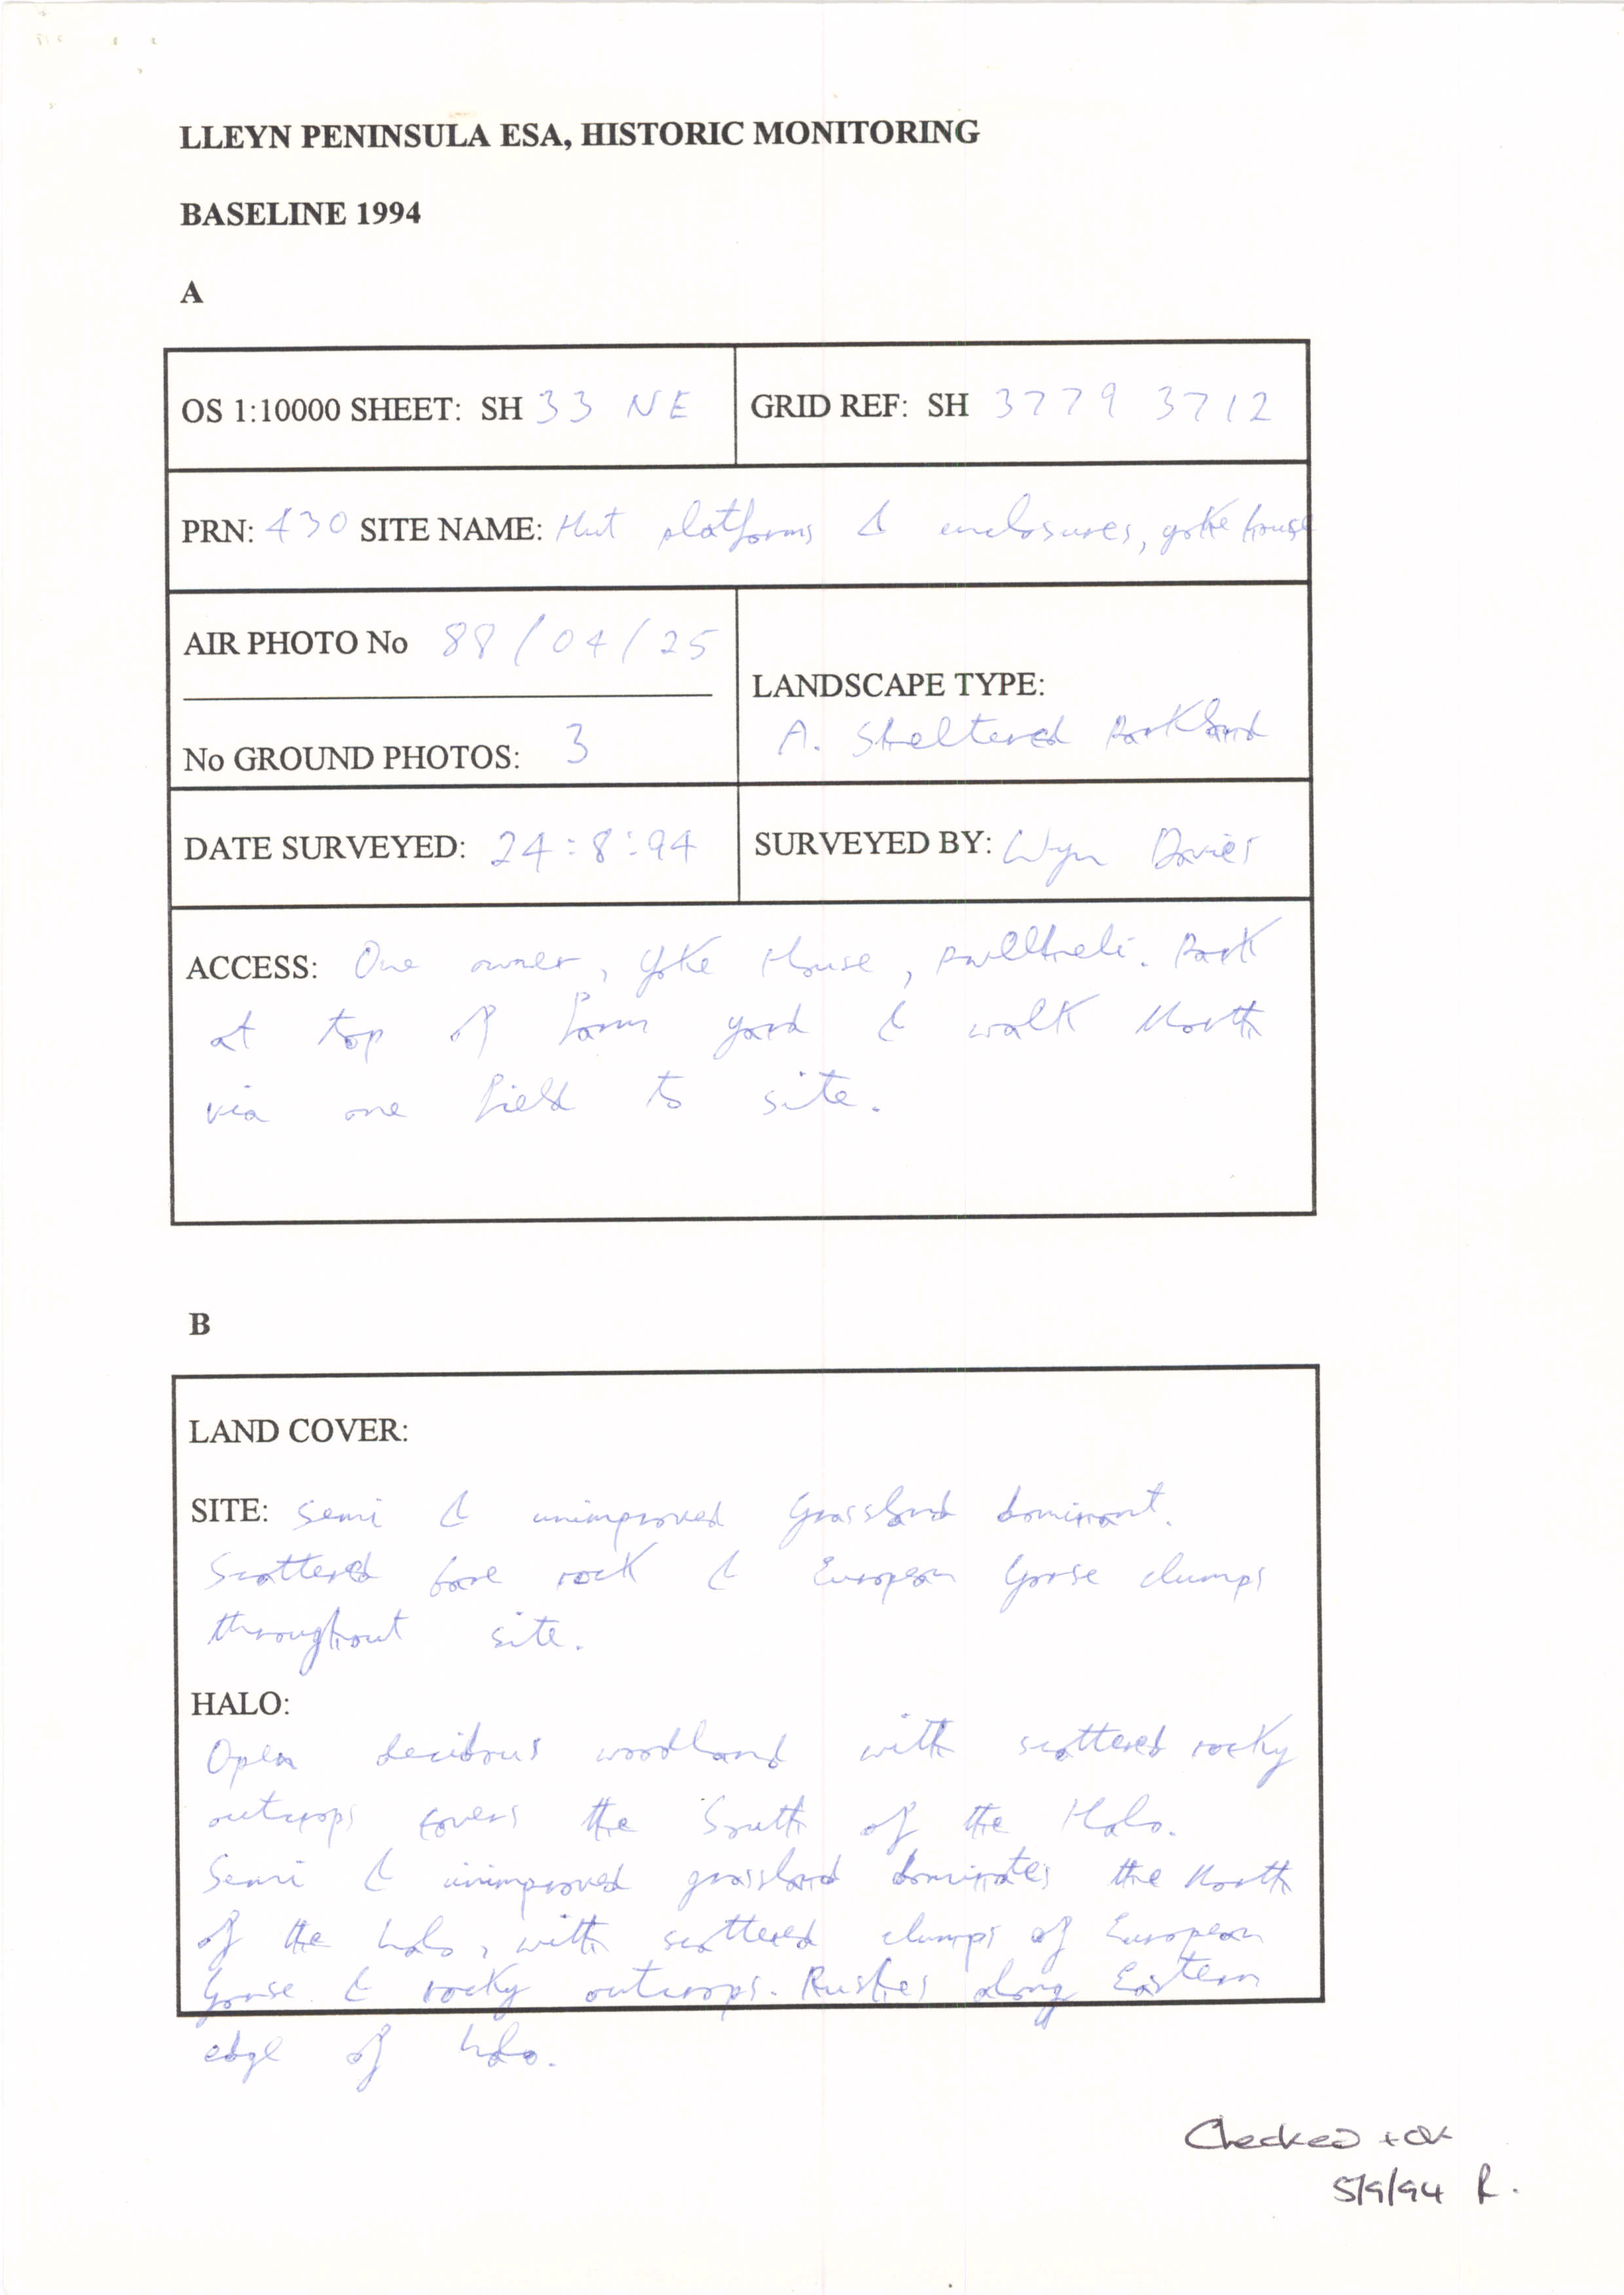 LLEYN PENINSULA ESA, HISTORIC MONITORING
BASELINE 1994
A
OS 1:10000 SHEET: SH 33 NE
GRID REF: SH 3779 3712
PRN: 430 SITE NAME: Hut platforms & enclosures, yoke house
AIR PHOTO No 88/04/25
No GROUND PHOTOS: 3
LANDSCAPE TYPE:
A. Sheltered Parkland
DATE SURVEYED: 24:8:94
SURVEYED BY: Wyn Davies
ACCESS: One owner, Yoke House, pwllheli. Park
at top of farm yard & walk North
via one field to site.
B
LAND COVER:
SITE: Semi & unimproved grassland dominant.
Scattered bare rock & European Gorse clumps
throughout site.
HALO:
Open decidous woodland with scattered rocky
outcrops covers the South of the Halo.
Semi & unimproved grassland dominates the North
of the halo, with scattered clumps of European
Gorse & rocky outcrops. Rushes along Eastern
edge of halo.
Checked + ok
5/9/94 R.